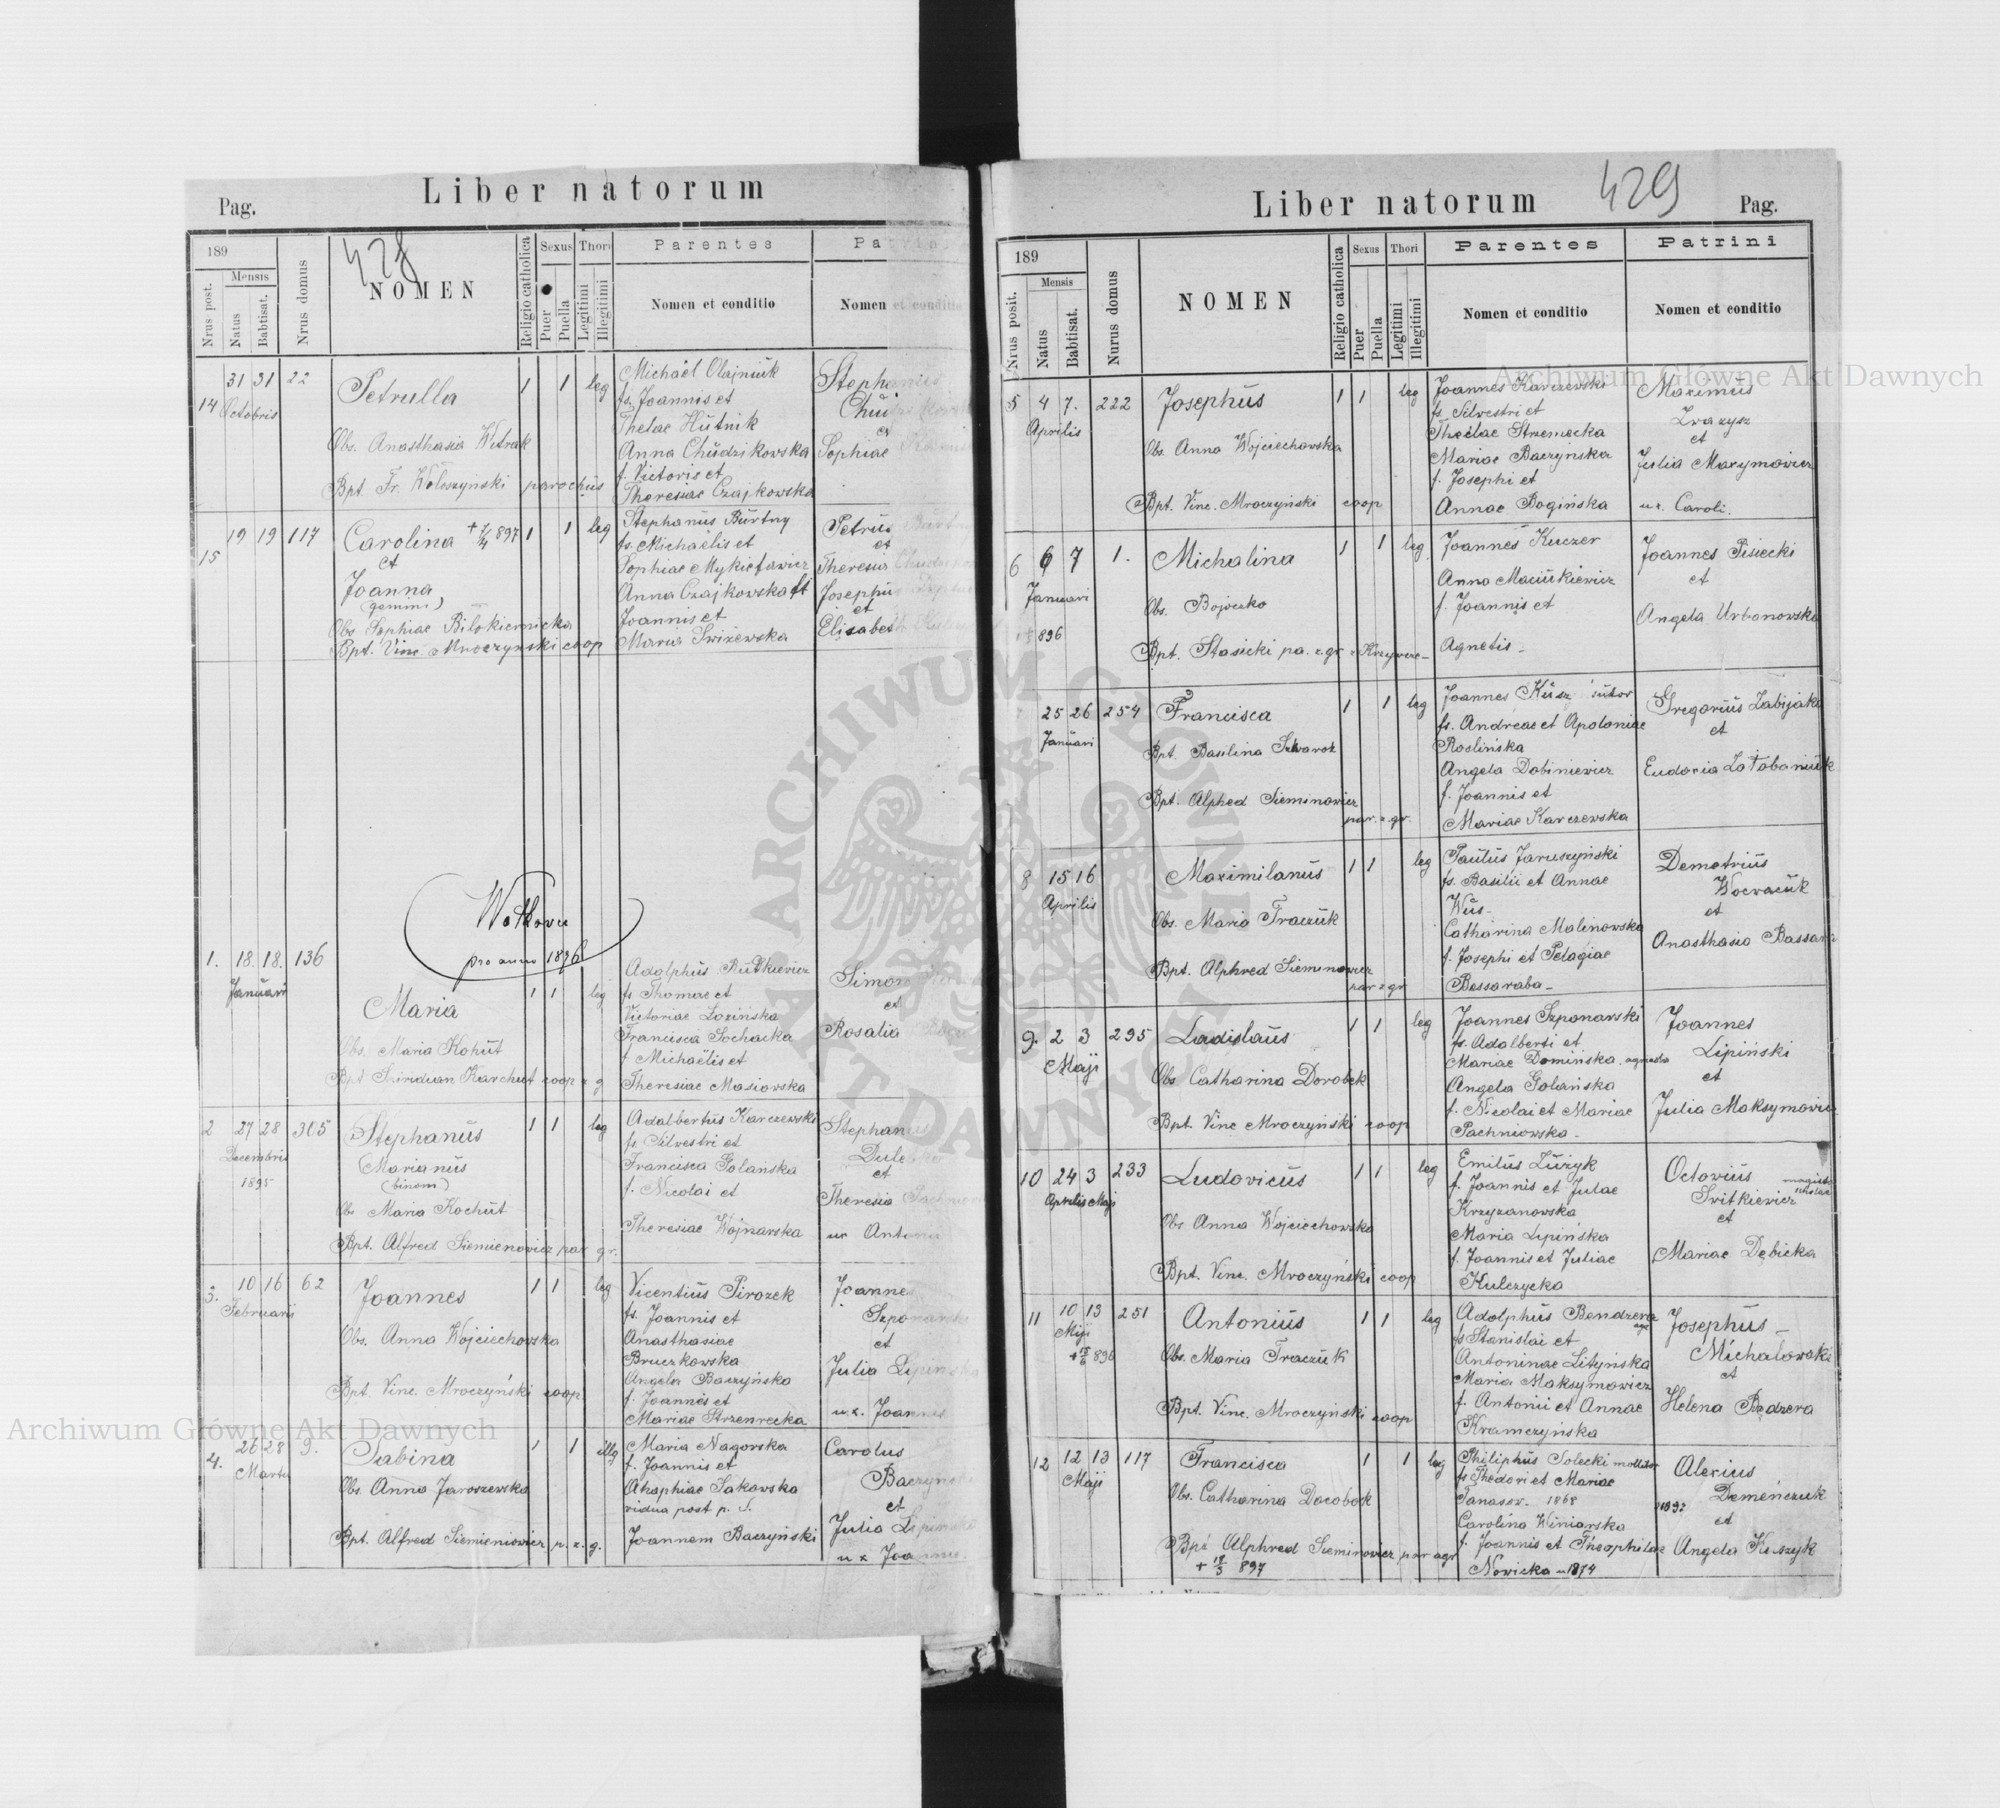 Liber natorum
Pag.
428
189
Mensis
Nrus post.
Natus
Babtisat.
Nrus domus
NOMEN
Religio catholica
Sexus
Puer
Puella
Thori
Legitimi
Illegitimi
Parentes
Nomen et conditio
Patrini
Nomen et conditio
14 31 31 22 Petrulla 1 1 leg
Octobris
Obs. Anasthasia Witrak
Bpt. Fr. Wołoszyński parochus
Michaël Olajniuk
fs. Joannis et
Theclae Hutnik
Anna Chudzikowska
f. Victoris et
Theresiae Czajkowska
Stephanus
et
Sophiae
15 19 19 117 Carolina + 897 1 1 leg
et
Joanna
(gemini)
Obs. Sophiae Bilokiernicka
Bpt. Vinc. Mroczynski coop
Stephanus Burtny
fs. Michaëlis et
Sophiae Mykietowicz
Anna Czajkowska
Joannis et
Maria Swiżewska
Petrus Burtny
et
Theresia
Josephus
et
Elisabeth
Wołkowce
pro anno 1896
1. 18. 18. 136
Januari
Maria 1 1 leg
Obs. Maria Kohut
Bpt Spiriduan Karchut coop r g
Adolphus Rutkiewicz
fs Thomae et
Victoriae Łozinska
Francisca Sochacka
f Michaëlis et
Theresiae Masiowska
Simon
et
Rosalia
2 27 28 305 Stephanus 1 1 leg
Decembris
1895
Marianus
(binom)
Obs Maria Kochut
Bpt. Alfred Siemienowicz par gr.
Adalbertus Karczewski
fs. Silvestri et
Francisca Golańska
f. Nicolai et
Theresiae Wojnarska
Stephanus
et
Theresia
ux Antonii
3. 10 16 62 Joannes 1 1 leg
Februarii
Obs. Anna Wojciechowska
Bpt. Vinc. Mroczyński coop
Vicentius Pirozek
fs. Joannis et
Anasthasiae
Bruczkowska
Angela Baczyńska
f. Joannes et
Mariae Strzenrecka
Joannes
Szponarski
et
Julia Lipinska
ux. Joannis
4. 26 28 9. Sabina 1 1 illg
Martii
Obs. Anna Jaroszewska
Bpt. Alfred Siemieniowicz p. r. g.
Maria Nagorska
f. Joannis et
Ahaphiae Sakowska
vidua post p. d.
Joannem Baczyński
Carolus
Baczynski
et
Julia Lipinska
ux Joannis
Liber natorum
429
Pag.
189
Mensis
Nrus posit.
Natus
Babtisat.
Nurus domus
NOMEN
Religio catholica
Sexus
Puer
Puella
Thori
Legitimi
Illegitimi
Parentes
Nomen et conditio
Patrini
Nomen et conditio
5 4 7. 222 Josephus 1 1 leg
Aprilis
Obs. Anna Wojciechowska
Bpt. Vinc. Mroczyński coop
Joannes Karczewski
fs. Silvestri et
Theclae Strzemecka
Mariae Baczynska
f. Josephi et
Annae Bogińska
Maximus
et
Julia Maxymowicz
ux. Caroli.
6 6 7 1. Michalina 1 1 leg.
Januari
896
Obs. Bojczuko
Bpt. Stasicki pa. r. gr. Krzywcze
Joannes Kuczer
Anna Maciukiewicz
f. Joannis et
Agnetis
Joannes Pisiecki
et
Angela Urbanowska
25 26 254 Francisca 1 1 leg
Januari
Bpt. Basilina Szwaroz
Bpt. Alphred Sieminowicz
par. r. gr.
Joannes Kusz sutor
fs. Andreae et Apoloniae
Roslińska
Angela Dobiniewicz
f. Joannis et
Mariae Karczewska
Gregorius Zabijaka
et
Eudoxia Łotobaniuk
8 15 16 Maximilanus 1 1 leg
Aprilis
Obs. Maria Traczuk
Bpt. Alphred Sieminowicz
par r gr
Paulus Jaruszyński
fs. Basilii et Annae
Wus
Catharina Malinowska
f. Josephi et Pelagiae
Bessaraba
Demetrius
et
Anasthasia Bassara
9. 2 3 295 Ladislaus 1 1 leg
Maji
Obs Catharina Dorobek
Bpt. Vinc Mroczyński coop
Joannes Szponarski
fs. Adalberti et
Mariae Domińska
Angela Golańska
f. Nicolai et Mariae
Pachniowska
Joannes
Lipiński
et
Julia Maksymowicz
10 24 3 233 Ludovicus 1 1 leg
Aprilis Maji
Obs. Anna Wojciechowska
Bpt. Vinc. Mroczyński coop
Emilus Zużyk
f. Joannis et Julae
Krzyzanowska
Maria Lipińska
f. Joannis et Juliae
Kulczycka
Octavius
Switkiewicz
et
Mariae Dębicka
11 10 13 251 Antonius 1 1 leg
Maji
+ 15/6 896
Obs. Maria Traczuk
Bpt. Vinc. Mroczyński coop
Adolphus Bendzera
fs Stanislai et
Antoninae Lityńska
Maria Maksymowicz
f. Antonii et Annae
Kramczyńska
Josephus
Michałowski
et
Helena Będzera
12 12 13 117 Francisca 1 1 leg
Maji
Obs. Catharina Dorobek
Bpt Alphred Sieminowicz par r gr
+ 897
Philiphus Solecki molitor
fs Thedori et Mariae
Tanasow 1868
Carolina Winiarska
f. Joannis et Theophilae
Nowicka n 1874
Alexius
Demeńczuk
1892
et
Angela Kuszyk
Archiwum Główne Akt Dawnych
Archiwum Główne Akt Dawnych
ARCHIWUM GŁÓWNE AKT DAWNYCH